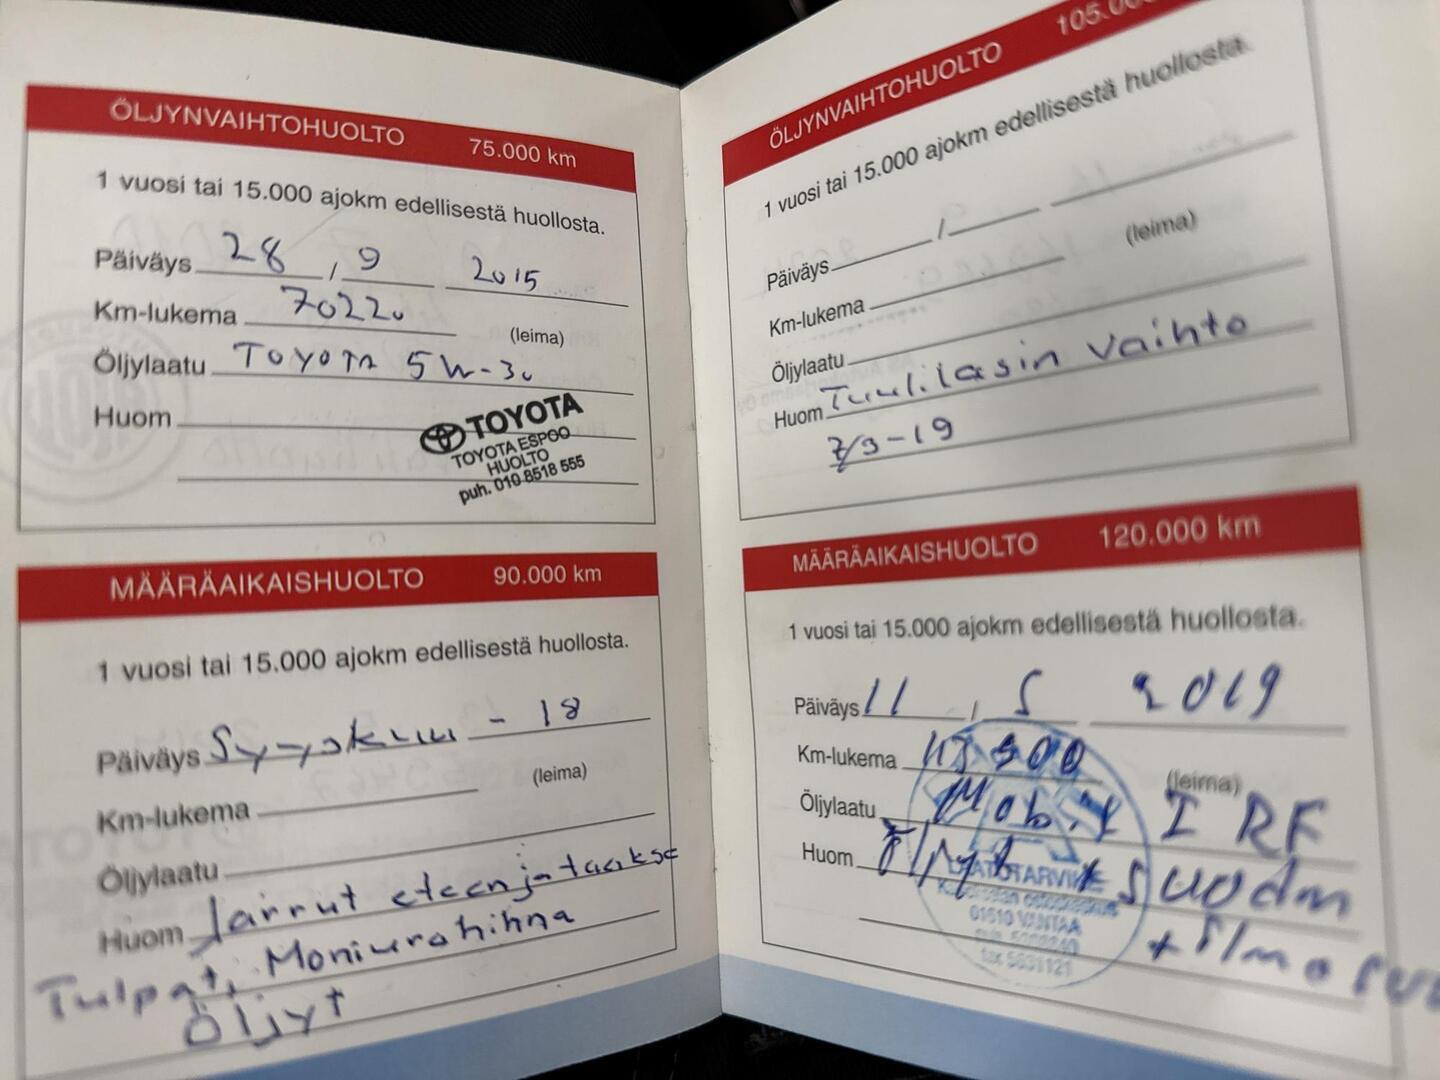 ÖLJYNVAIHTOHUOLTO 75.000 km
1 vuosi tai 15.000 ajokm edellisestä huollosta.
Päiväys 28 / 9 2015
Km-lukema 70220
(leima)
Öljylaatu TOYOTA 5W-30
Huom
TOYOTA
TOYOTA ESPOO
HUOLTO
puh. 010 8518 555
MÄÄRÄAIKAISHUOLTO 90.000 km
1 vuosi tai 15.000 ajokm edellisestä huollosta.
Päiväys Syyskuu - 18
(leima)
Km-lukema
Öljylaatu
Huom Jarrut eteen ja taakse
Tulpat, Moniurahihna
Öljyt
ÖLJYNVAIHTOHUOLTO
1 vuosi tai 15.000 ajokm edellisestä huollosta.
Päiväys /
(leima)
Km-lukema
Öljylaatu
Huom Tuulilasin vaihto
7/3-19
MÄÄRÄAIKAISHUOLTO 120.000 km
1 vuosi tai 15.000 ajokm edellisestä huollosta.
Päiväys 11 / 5 2019
Km-lukema
(leima)
Öljylaatu Mobil 1 RF
Huom Öljyt + suodin
01510 VANTAA